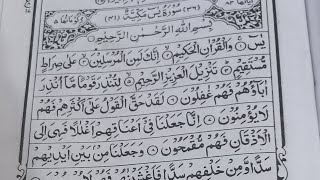 (٣٦) سُوْرَةُ يٰسٓ مَكِّيَّةٌ (٤١)
بِسْمِ اللّٰهِ الرَّحْمٰنِ الرَّحِيْمِ
يٰسٓ ۚ وَالْقُرْاٰنِ الْحَكِيْمِ ۙ اِنَّكَ لَمِنَ الْمُرْسَلِيْنَ ۙ عَلٰى صِرَاطٍ
مُّسْتَقِيْمٍ ؕ تَنْزِيْلَ الْعَزِيْزِ الرَّحِيْمِ ۙ لِتُنْذِرَ قَوْمًا مَّاۤ اُنْذِرَ
اٰبَآؤُهُمْ فَهُمْ غٰفِلُوْنَ لَقَدْ حَقَّ الْقَوْلُ عَلٰۤى اَكْثَرِهِمْ فَهُمْ
لَا يُؤْمِنُوْنَ اِنَّا جَعَلْنَا فِيْۤ اَعْنَاقِهِمْ اَغْلٰلًا فَهِيَ اِلَى
الْاَذْقَانِ فَهُمْ مُّقْمَحُوْنَ وَجَعَلْنَا مِنْۢ بَيْنِ اَيْدِيْهِمْ
سَدًّا وَّمِنْ خَلْفِهِمْ سَدًّا فَاَغْشَيْنٰهُمْ فَهُمْ